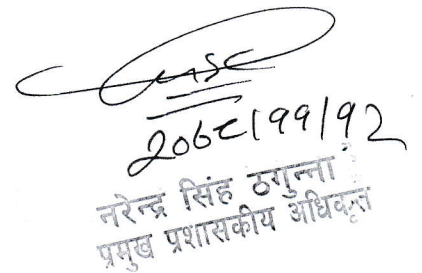 २०६८।११।१२
नरेन्द्र सिंह ठगुन्ना
प्रमुख प्रशासकीय अधिकृत